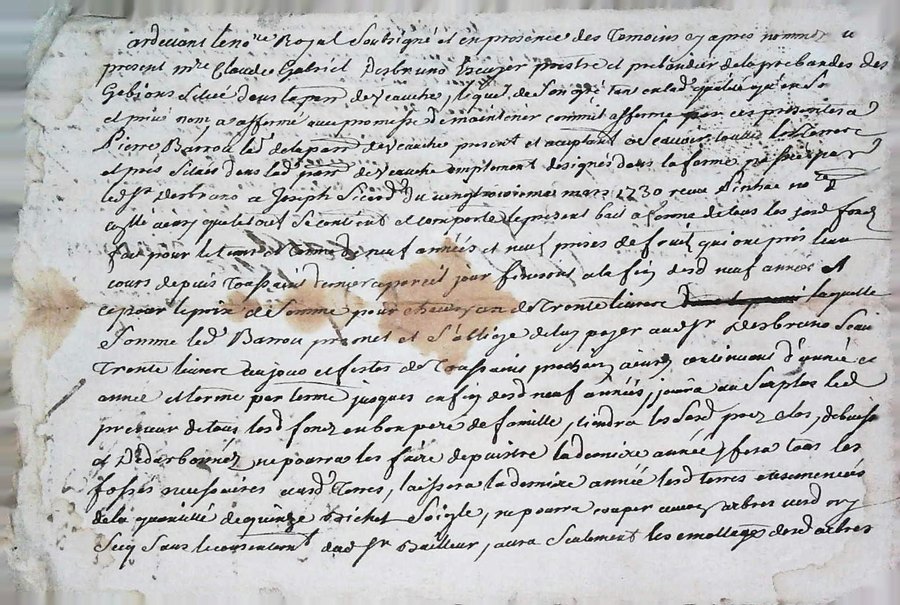 ardevant le nore Royal Soubsigné et en presence des Temoins cy apres nommez
present mre Claude Gabriel Desbruno Escuyer prestre et prebandier de la prebandes des
Gebions Scitué dans la parr de Veauche, lequel de Son gré tant en lad qualité qu'en So
et privé nom a affermé avec promesse de maintenir comme il afferme par ces presentes a
Pierre Barrou Lab de la parr de Veauche present et aceptant Scavoir toutes les terres
et prés Scitués dans lad parr de Veauche amplement designés dans la ferme passée par
led Sr Desbruno a Joseph Sicord du vingttroisieme mars 1730 receu no
ainsy que le tout Se contient et comporte, le present bail a ferme de tous les Susd fonds
fait pour le tems et terme de neuf années et neuf prises de fruits qui ont pris leur
cours depuis Toussaint dernier a pareil jour finiront a la fin desd neuf années Et
ce pour le prix et Somme pour chacun an de Trente livres laquelle
Somme led Barrou promet et S'oblige de luy payer aud Sr Desbruno
Trente livres au jour et festes de Toussaint prochain continuant d'année en
année et terme par terme jusques en fin desd neuf années, jouira au Surplus led
preneur de tous lesd fonds en bon pere de famille, tiendra les Susd prez clos,
et, ne pourra les faire depaistre la derniere année, fera tous les
fossés necessaires ausd Terres, laissera la derniere année lesd terres
de la quantité de quinze bichet Soigle, ne pourra couper aucuns arbres verd ny
Secq Sans le consentemt dud Sr Bailleur, aura Seulement les desd arbres